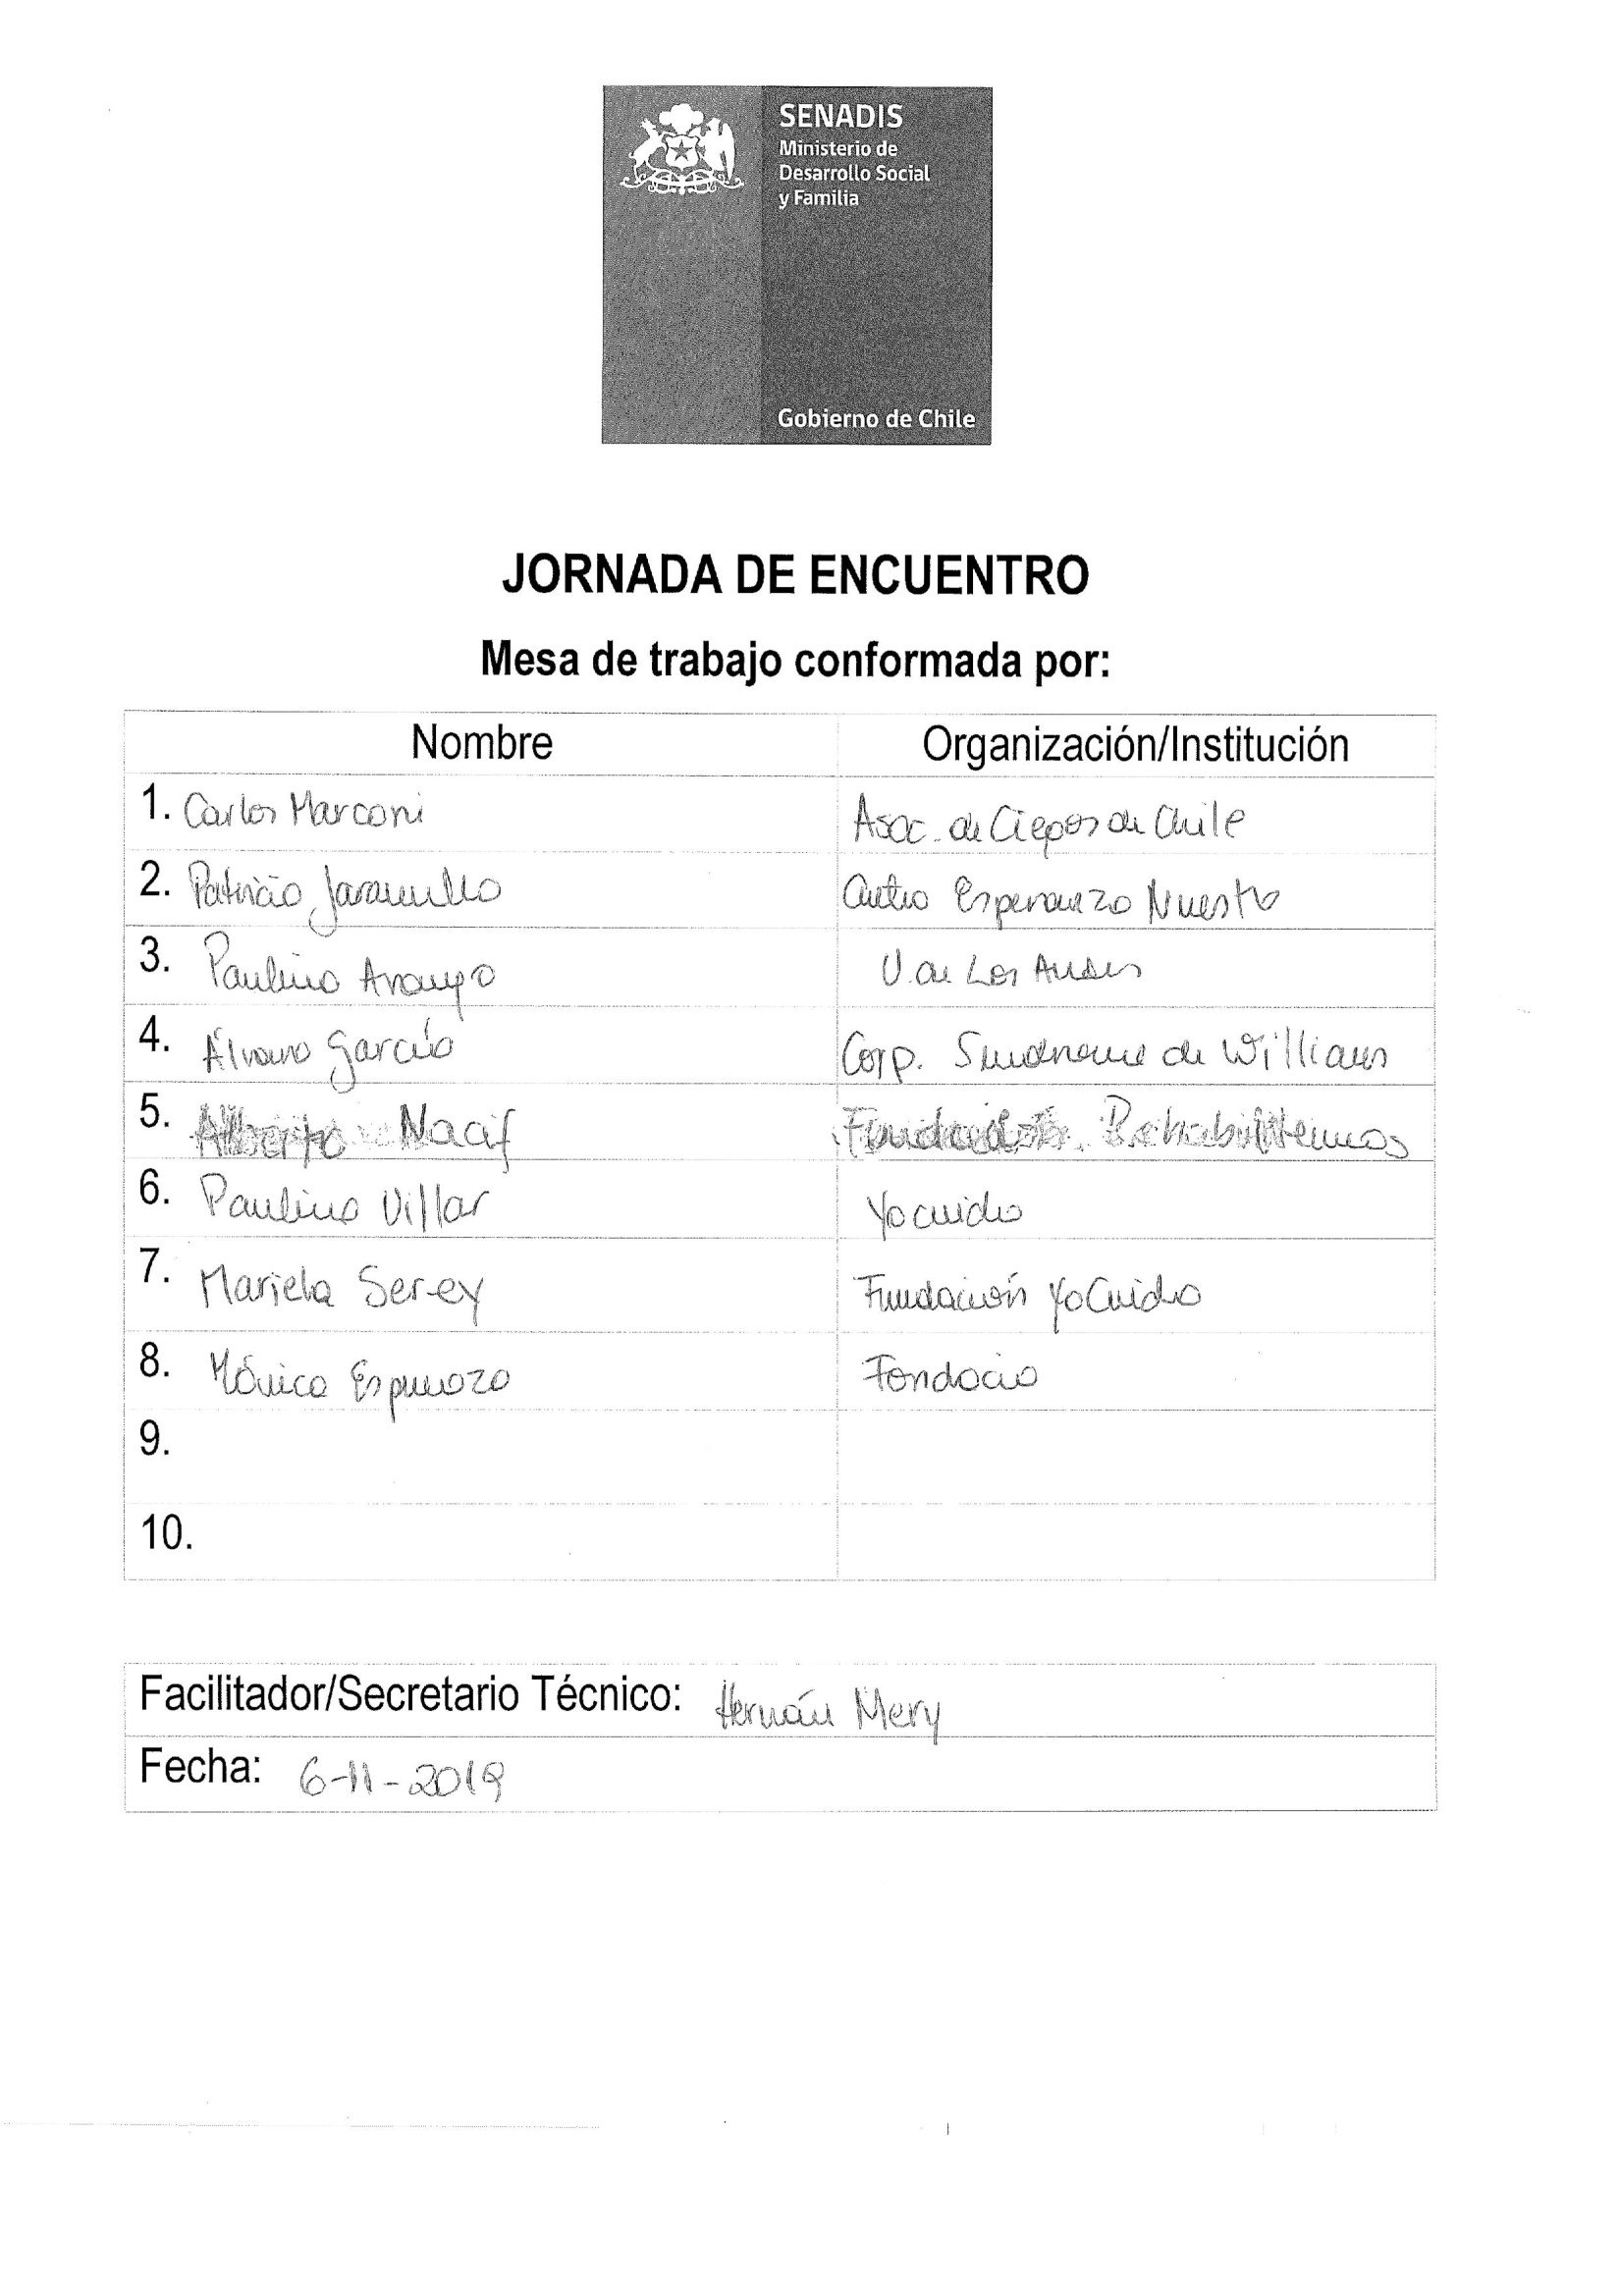 SENADIS
Ministerio de
Desarrollo Social
y Familia
Gobierno de Chile
JORNADA DE ENCUENTRO
Mesa de trabajo conformada por:
Nombre Organización/Institución
1. Carlos Marconi Asoc. de Ciegos de Chile
2. Patricio Jaramillo Centro Esperanza Nuestra
3. Paulina Araujo U. de Los Andes
4. Álvaro García Corp. Sindrome de Williams
5. Alberto Nacif Fundación Rehabilitemos
6. Paulina Villar Yo cuido
7. Mariela Serey Fundación Yo Cuido
8. Mónica Espinoza Fondacio
9.
10.
Facilitador/Secretario Técnico: Hernán Mery
Fecha: 6-11-2019